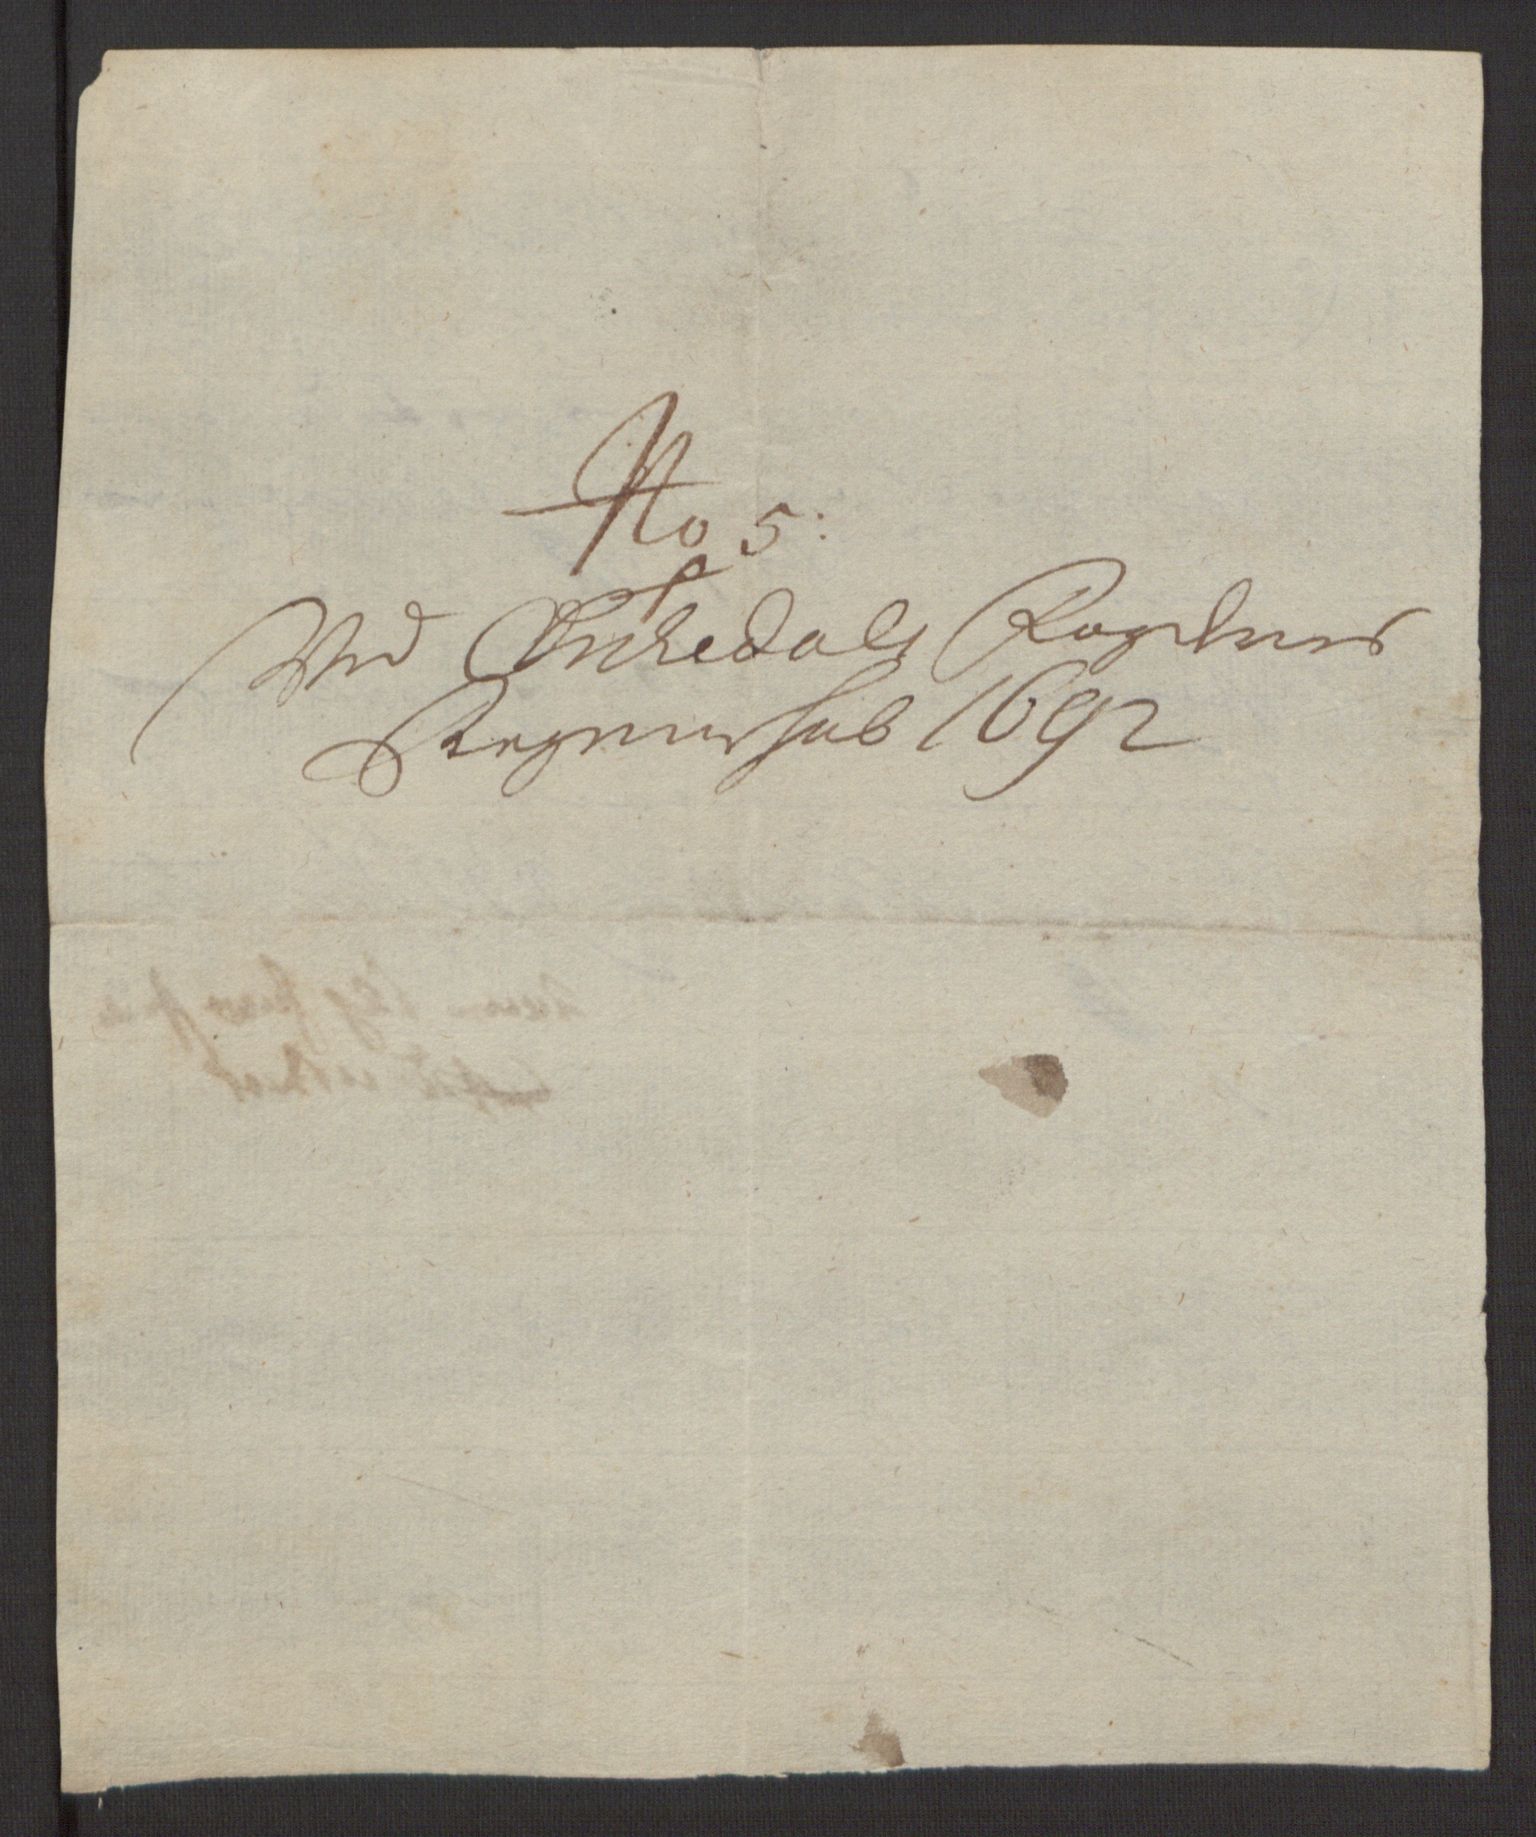 No 5:
Ved Orckedals Fogderies
Regnenshab 1692